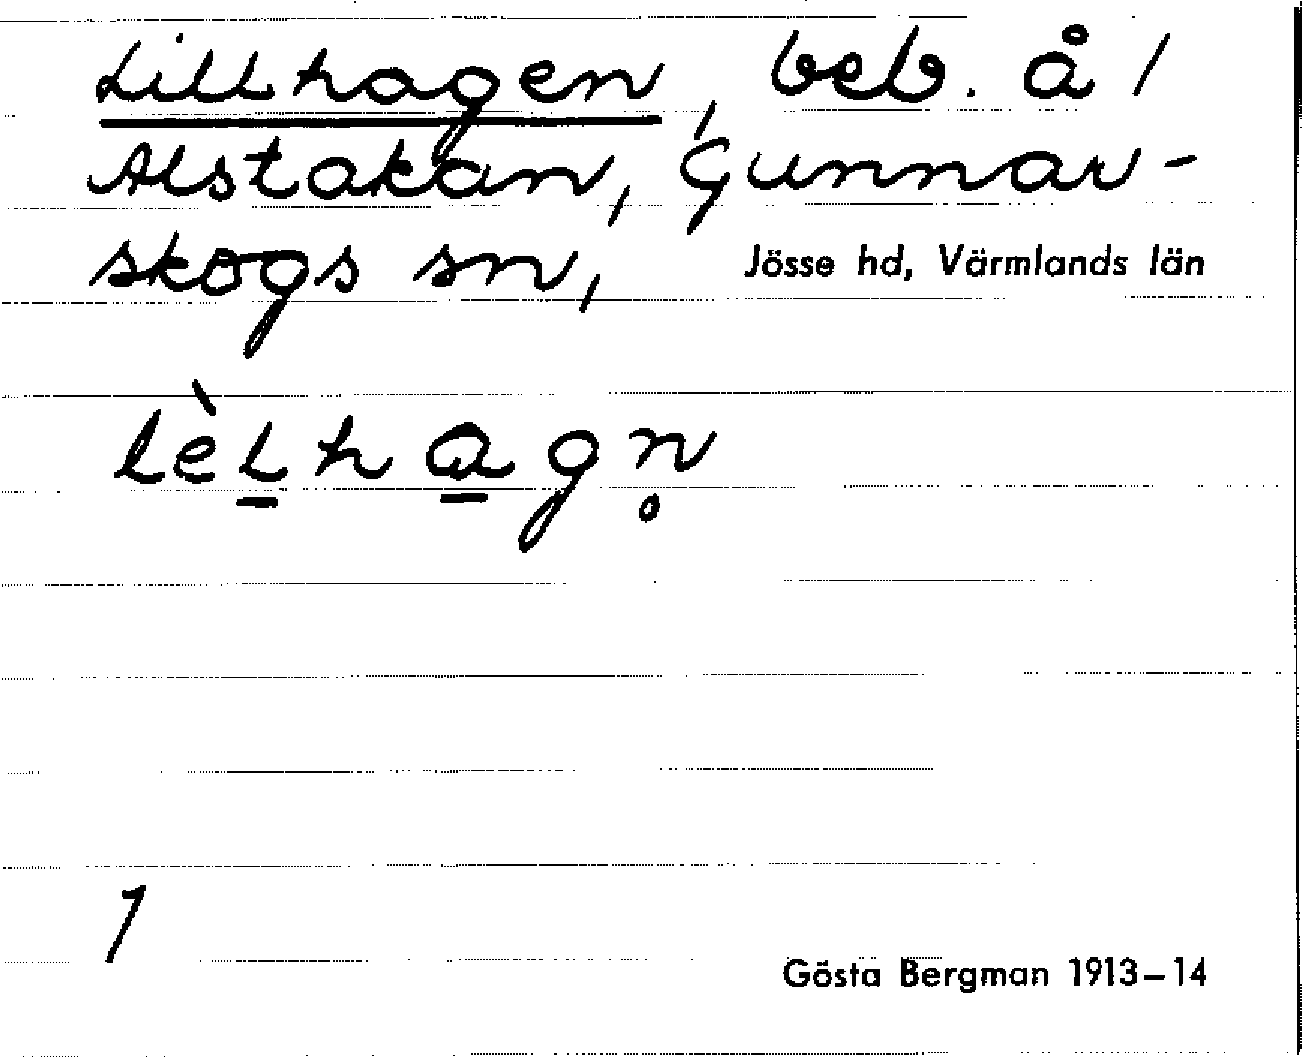 Lillhagen, beb. å /
Alstakan, Gunnar-
skogs sn, Jösse hd, Värmlands län
lèl̲ha̲gn̥
1
Gösta Bergman 1913–14